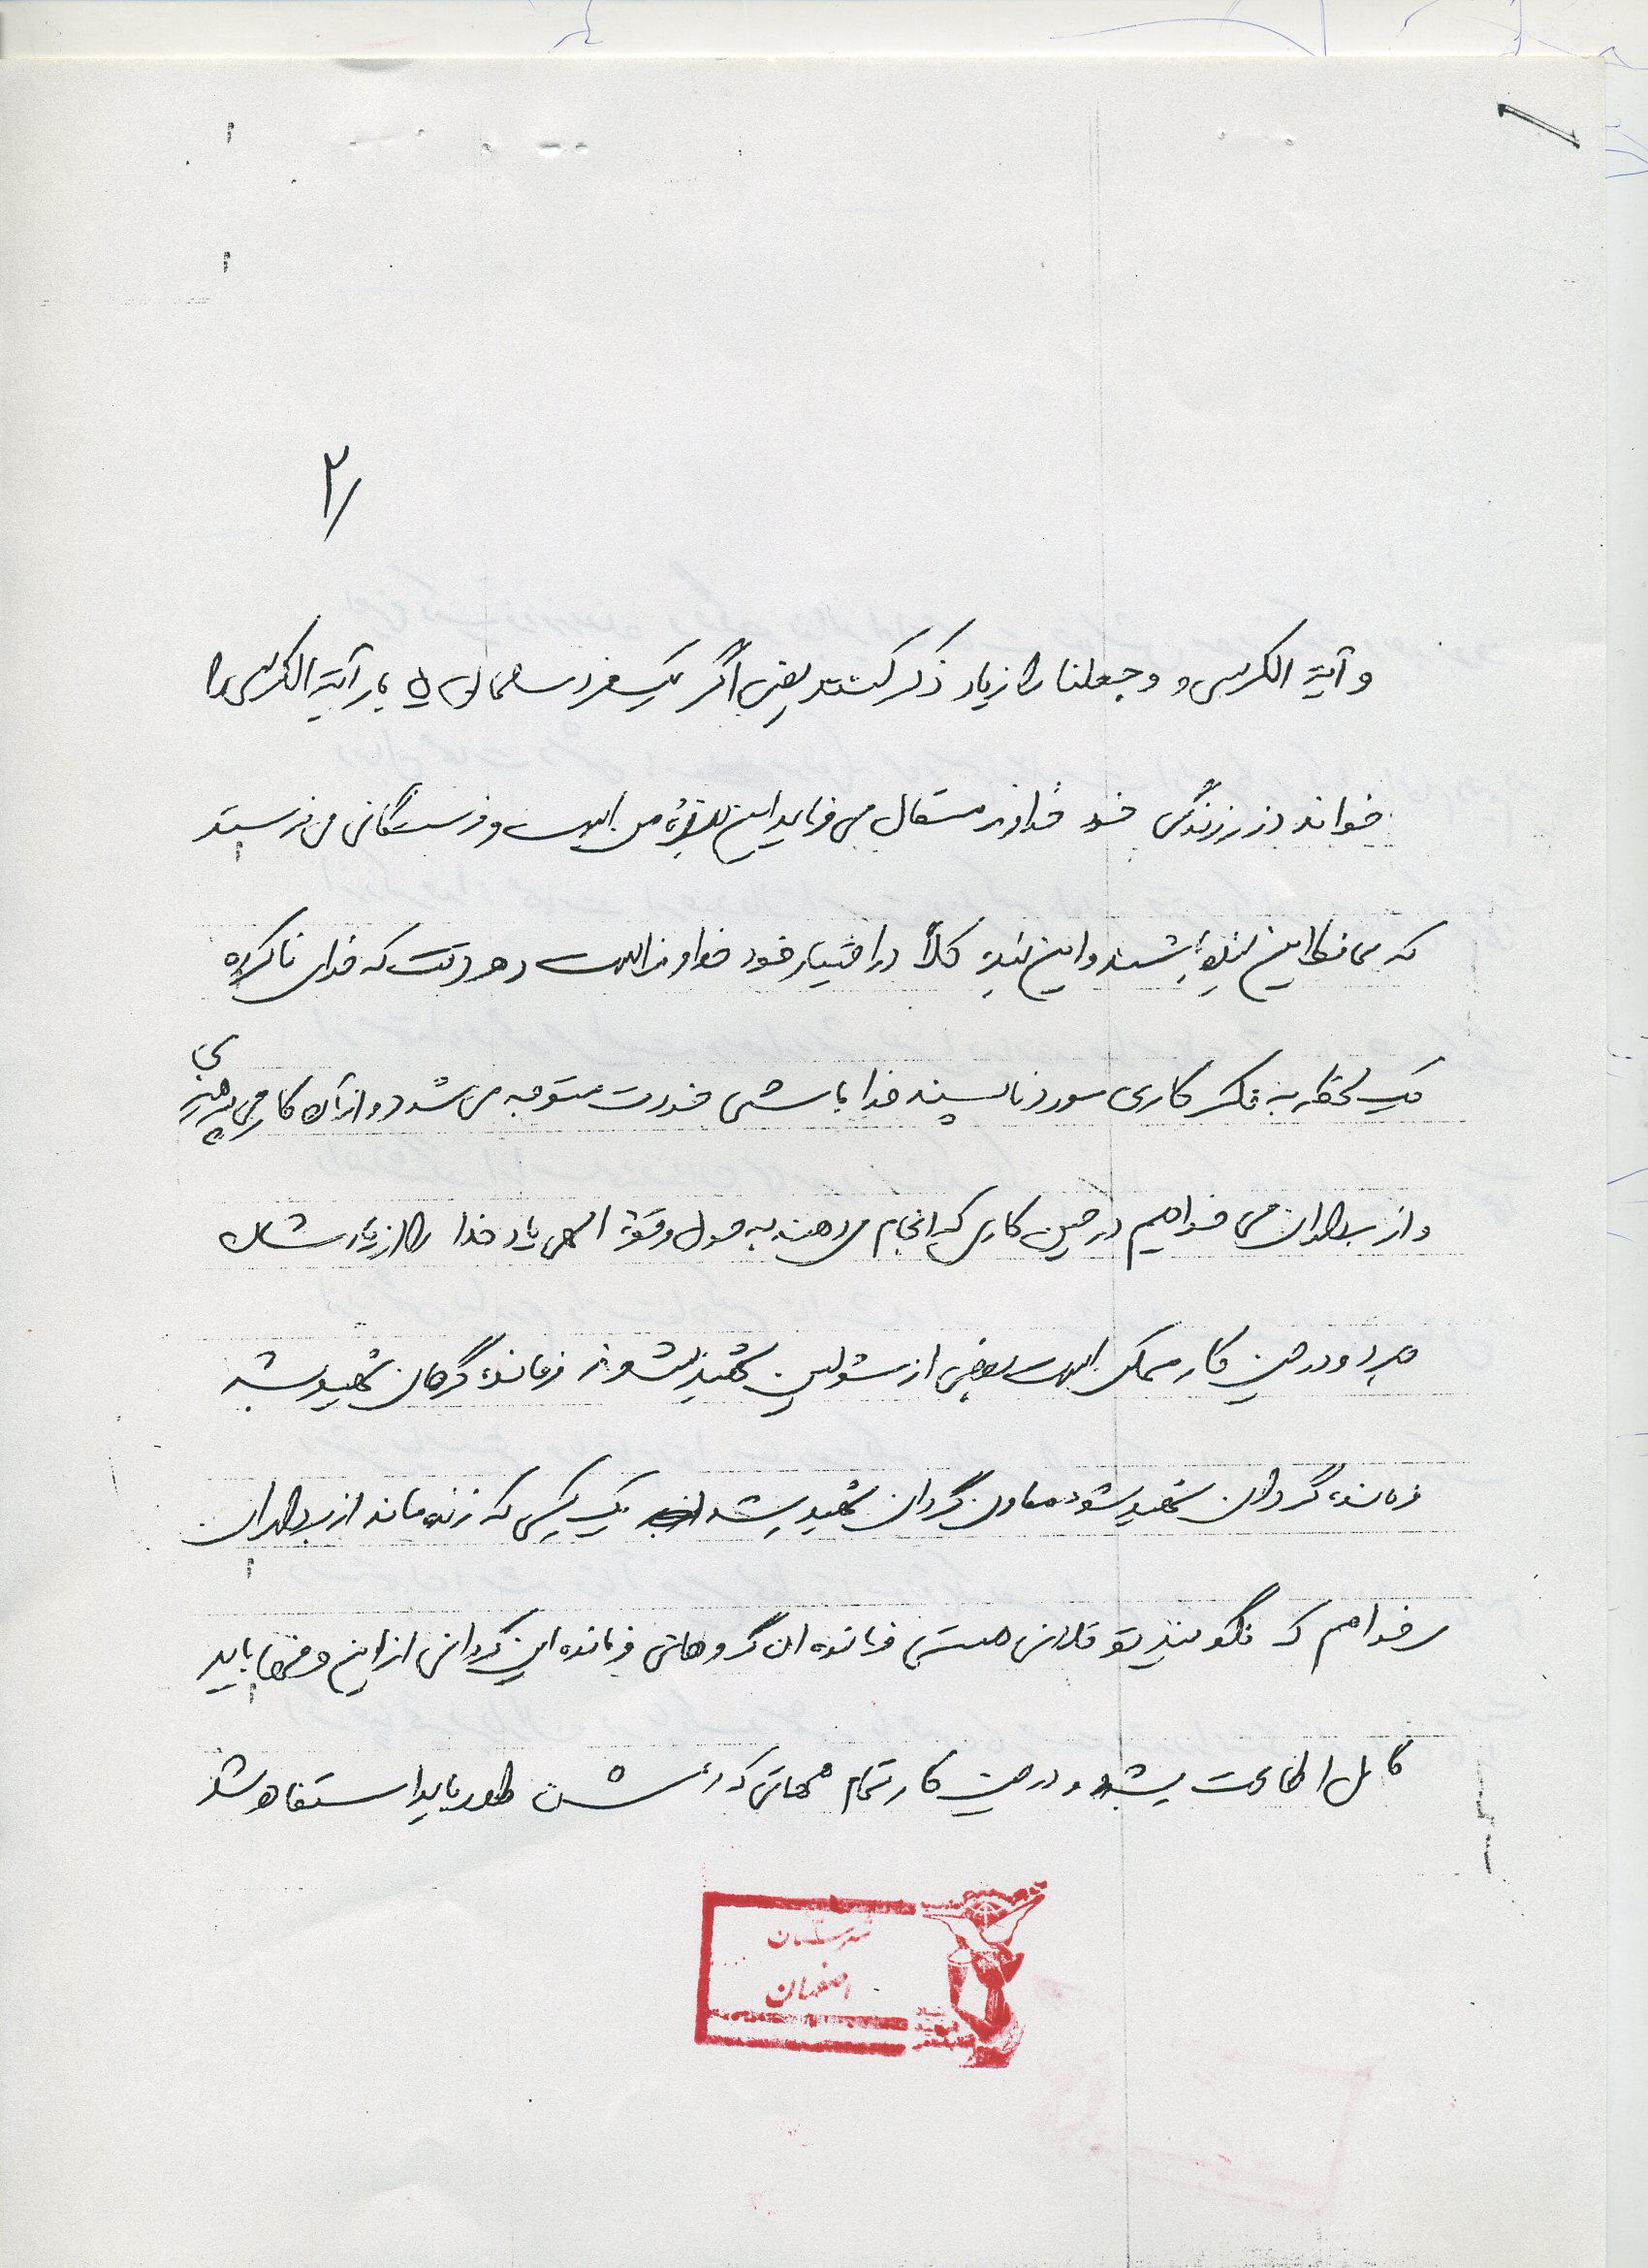 ۲/
و آیة الکرسی و وجعلنا را زیاد ذکر کنند یعنی اگر یک فرد مسلمانی ۵ بار آیة الکرسی را
خواند در زندگی خود خداوند متعال می فرماید این بنده من است و فرشتگانی می فرستد
که محافظ این بنده باشند و این بنده کلاً در اختیار خود خداوند است و هر وقت که خدای ناکرده
یک لحظه به فکر کاری مورد ناپسند خدا باشی خودت متوجه می شود و از آن کار می پرهیزی
و از برادران می خواهیم در حین کاری که انجام می دهند به حول و قوة الهی یاد خدا را از یادشان
نبرد و در حین کار ممکن است بعضی از مسئولین شهید بشوند فرمانده گرهان شهید بشه
فرمانده گردان شهید بشود معاون گردان شهید بشه یک کسی که زنده ماند از برادران
میخواهم که نگویند تو فلانی هستی فرمانده ان گروهانی فرمانده این گردانی از این حرفها باید
کامل اطاعت بشه و در حین کار تمام مهماتی که رئ شدن طور باید استفاده شد
شهرستان
اصفهان